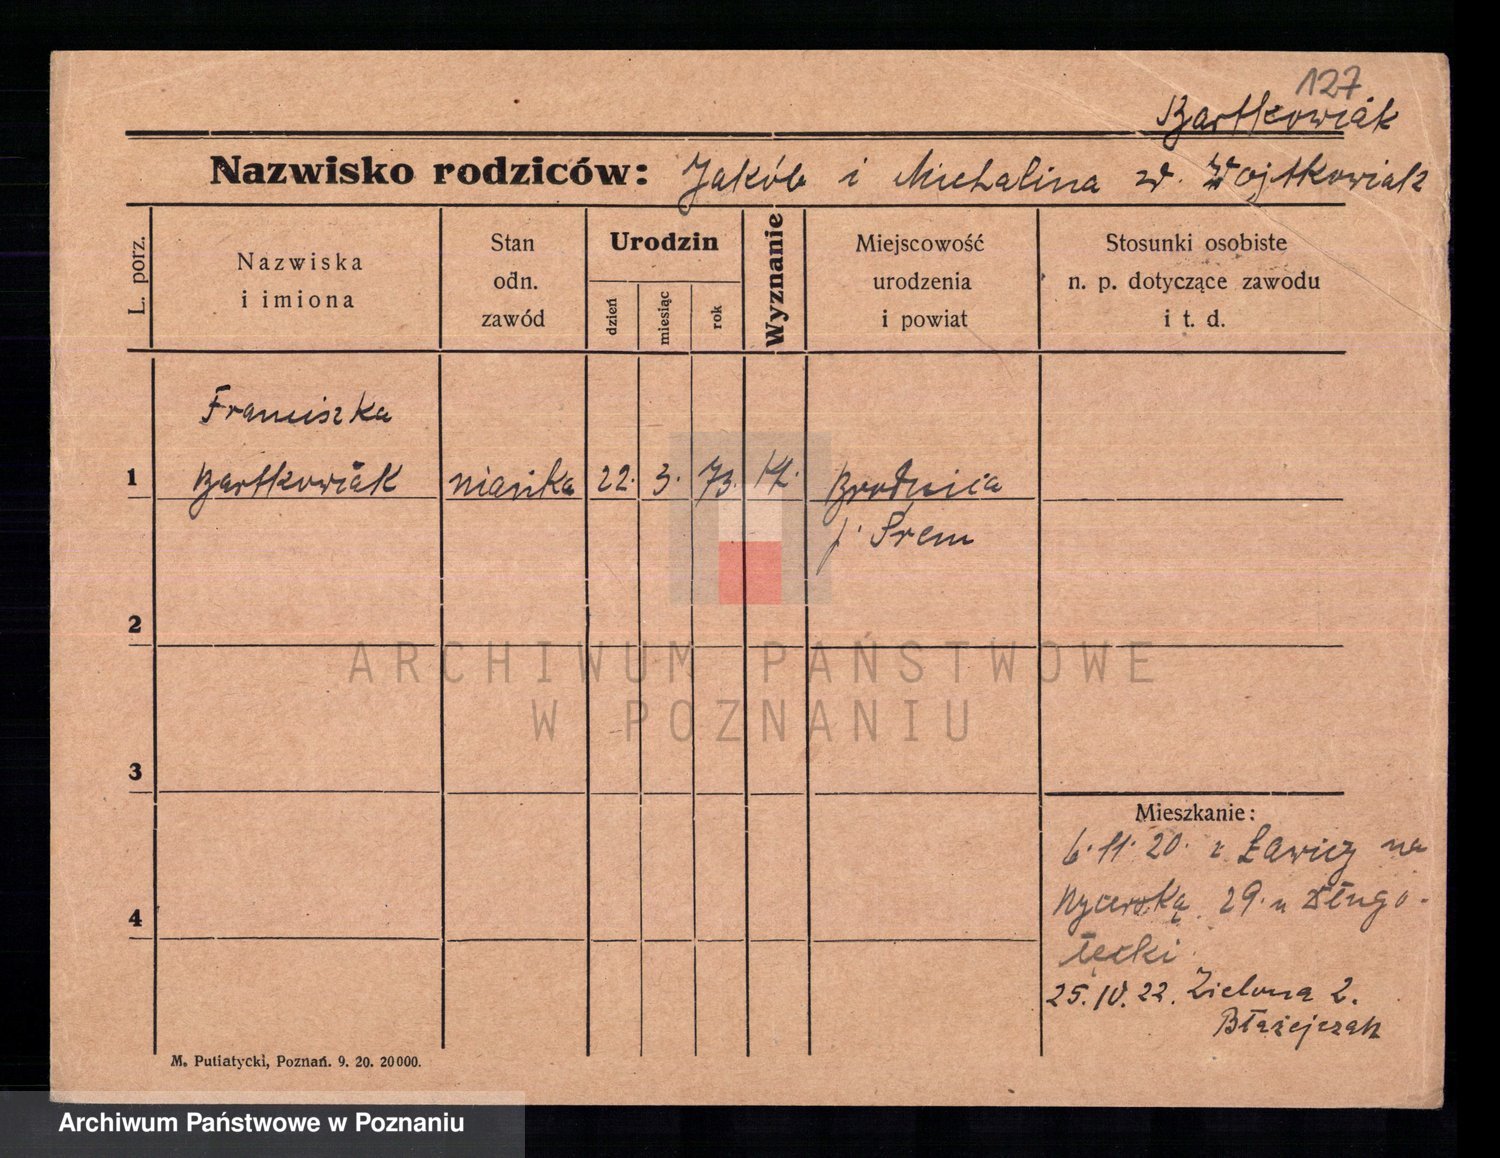 127
Bartkowiak
Nazwisko rodziców: Jakób i Michalina z d. Wojtkowiak
L. porz.
Nazwiska
i imiona
Stan
odn.
zawód
Urodzin
dzień
miesiąc
rok
Wyznanie
Miejscowość
urodzenia
i powiat
Stosunki osobiste
n. p. dotyczące zawodu
i t. d.
Franciszka
1 Bartkowiak niańka 22. 3. 73. Brodnica
Śrem
2
3
4
Mieszkanie:
6. 11. 20. z Ławicy na
29. u Długo-
łęcki
25. IV. 22. Zielona 2.
Błażejczak
M. Putiatycki, Poznań. 9. 20. 20000.
ARCHIWUM PAŃSTWOWE
W POZNANIU
Archiwum Państwowe w Poznaniu